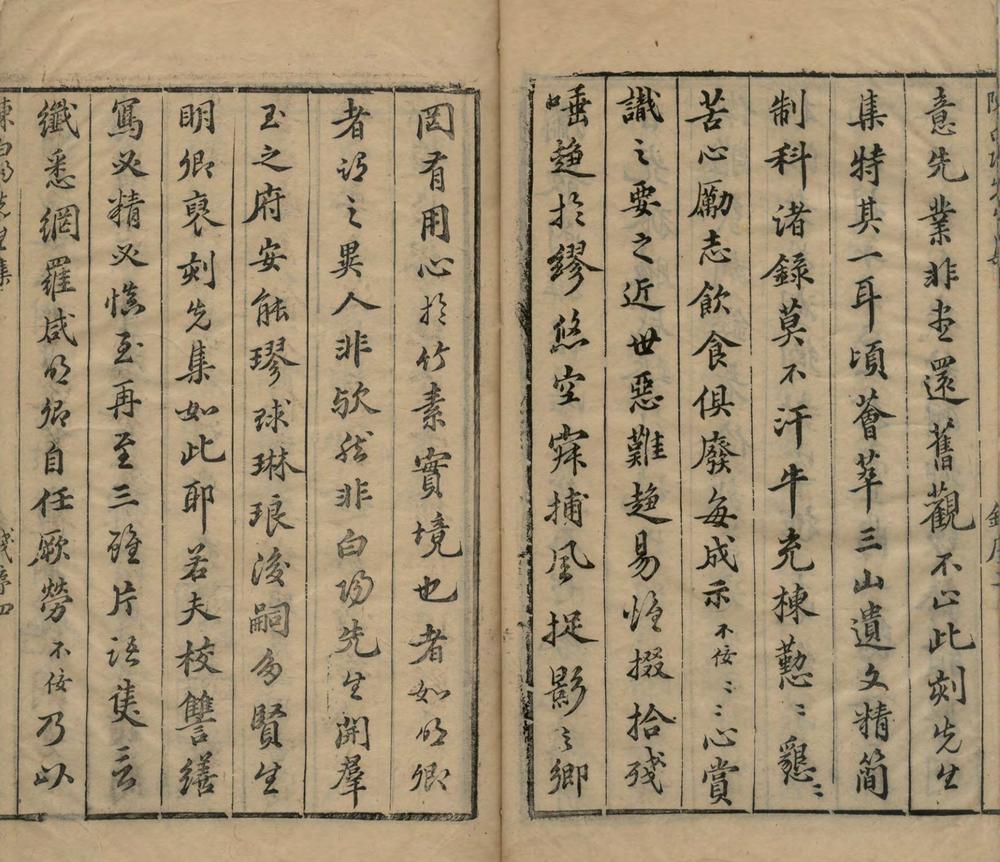 意先業非盡還舊觀不止此刻先生
集特其一耳頃薈萃三山遺文精簡
制科諸錄莫不汗牛充棟懃〻懇〻
苦心勵志飲食俱廢每成示不佞〻〻心賞
識之要之近世惡難趨易惟掇拾殘
唾趨於繆悠空寂捕風捉影之鄉
罔有用心於竹素實境也者如明卿
者謂之異人非歟然非白陽先生開羣
玉之府安能璆球琳琅後嗣多賢生
明卿裒刻先集如此耶若夫校讐繕
寫必精必慎至再至三雖片語隻言
纖悉網羅咸明卿自任厥勞不佞乃以
陳白陽先生集
錢序四